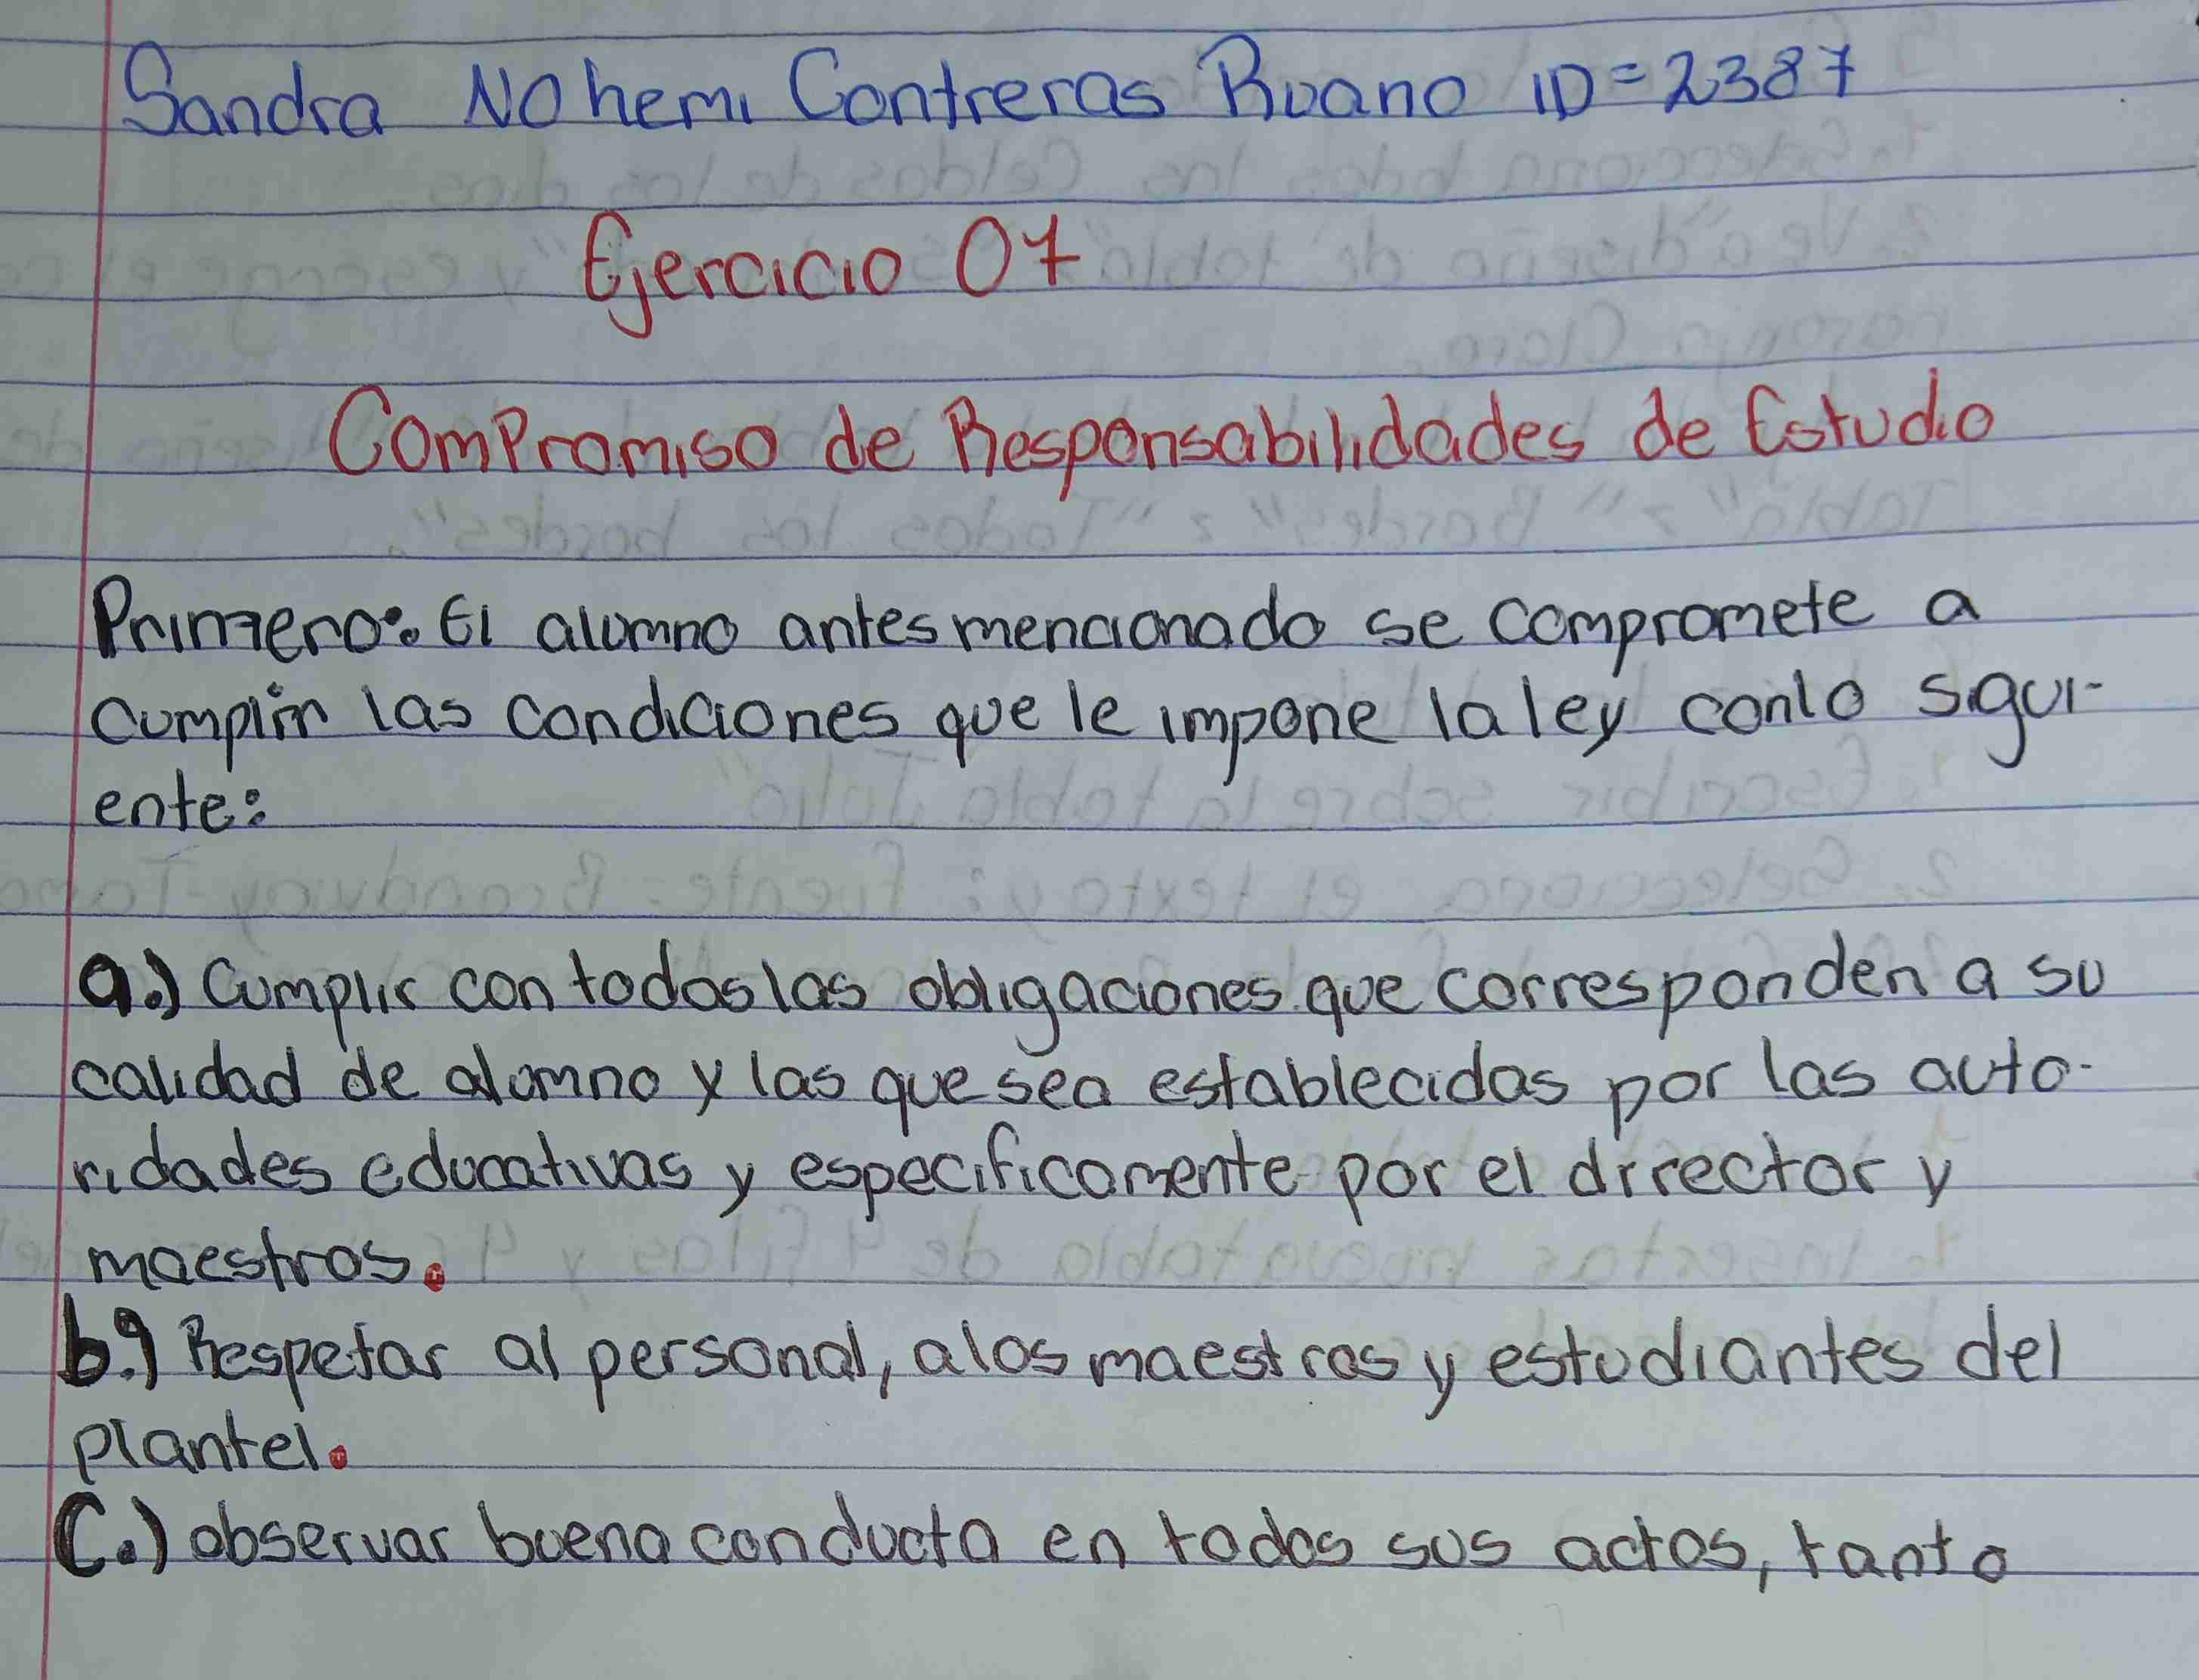 Sandra NOhemi Contreras Ruano ID=2387
Ejercicio 07
ComPromiso de Responsabilidades de Estudio
Primero: El alumno antes mencionado se compromete a
cumplir las condiciones que le impone la ley conlo sigui-
ente:
a.) Cumplir con todas las obligaciones que corresponden a su
calidad de alumno y las que sea establecidas por las auto-
ridades educativas y especificamente por el dirrector y
maestros.
b.) Respetar al personal, a los maestros y estudiantes del
plantel.
C.) observar buena conducta en todos sus actos, tanto